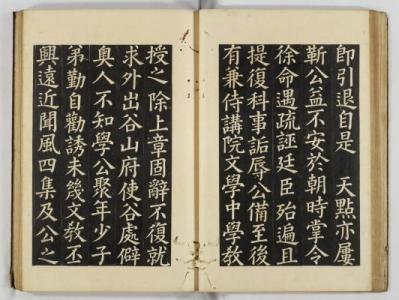 即引退自是 天點亦屢
靳公益不安於朝時掌令
徐命遇疏誣廷臣殆遍且
提復科事詬辱公備至後
有兼侍講院文學中學敎
授之 除上章固辭不復就
求外出谷山府使谷處僻
奧人不知學公聚年少子
弟勤自勸誘未幾文敎丕
興遠近聞風四集及公之